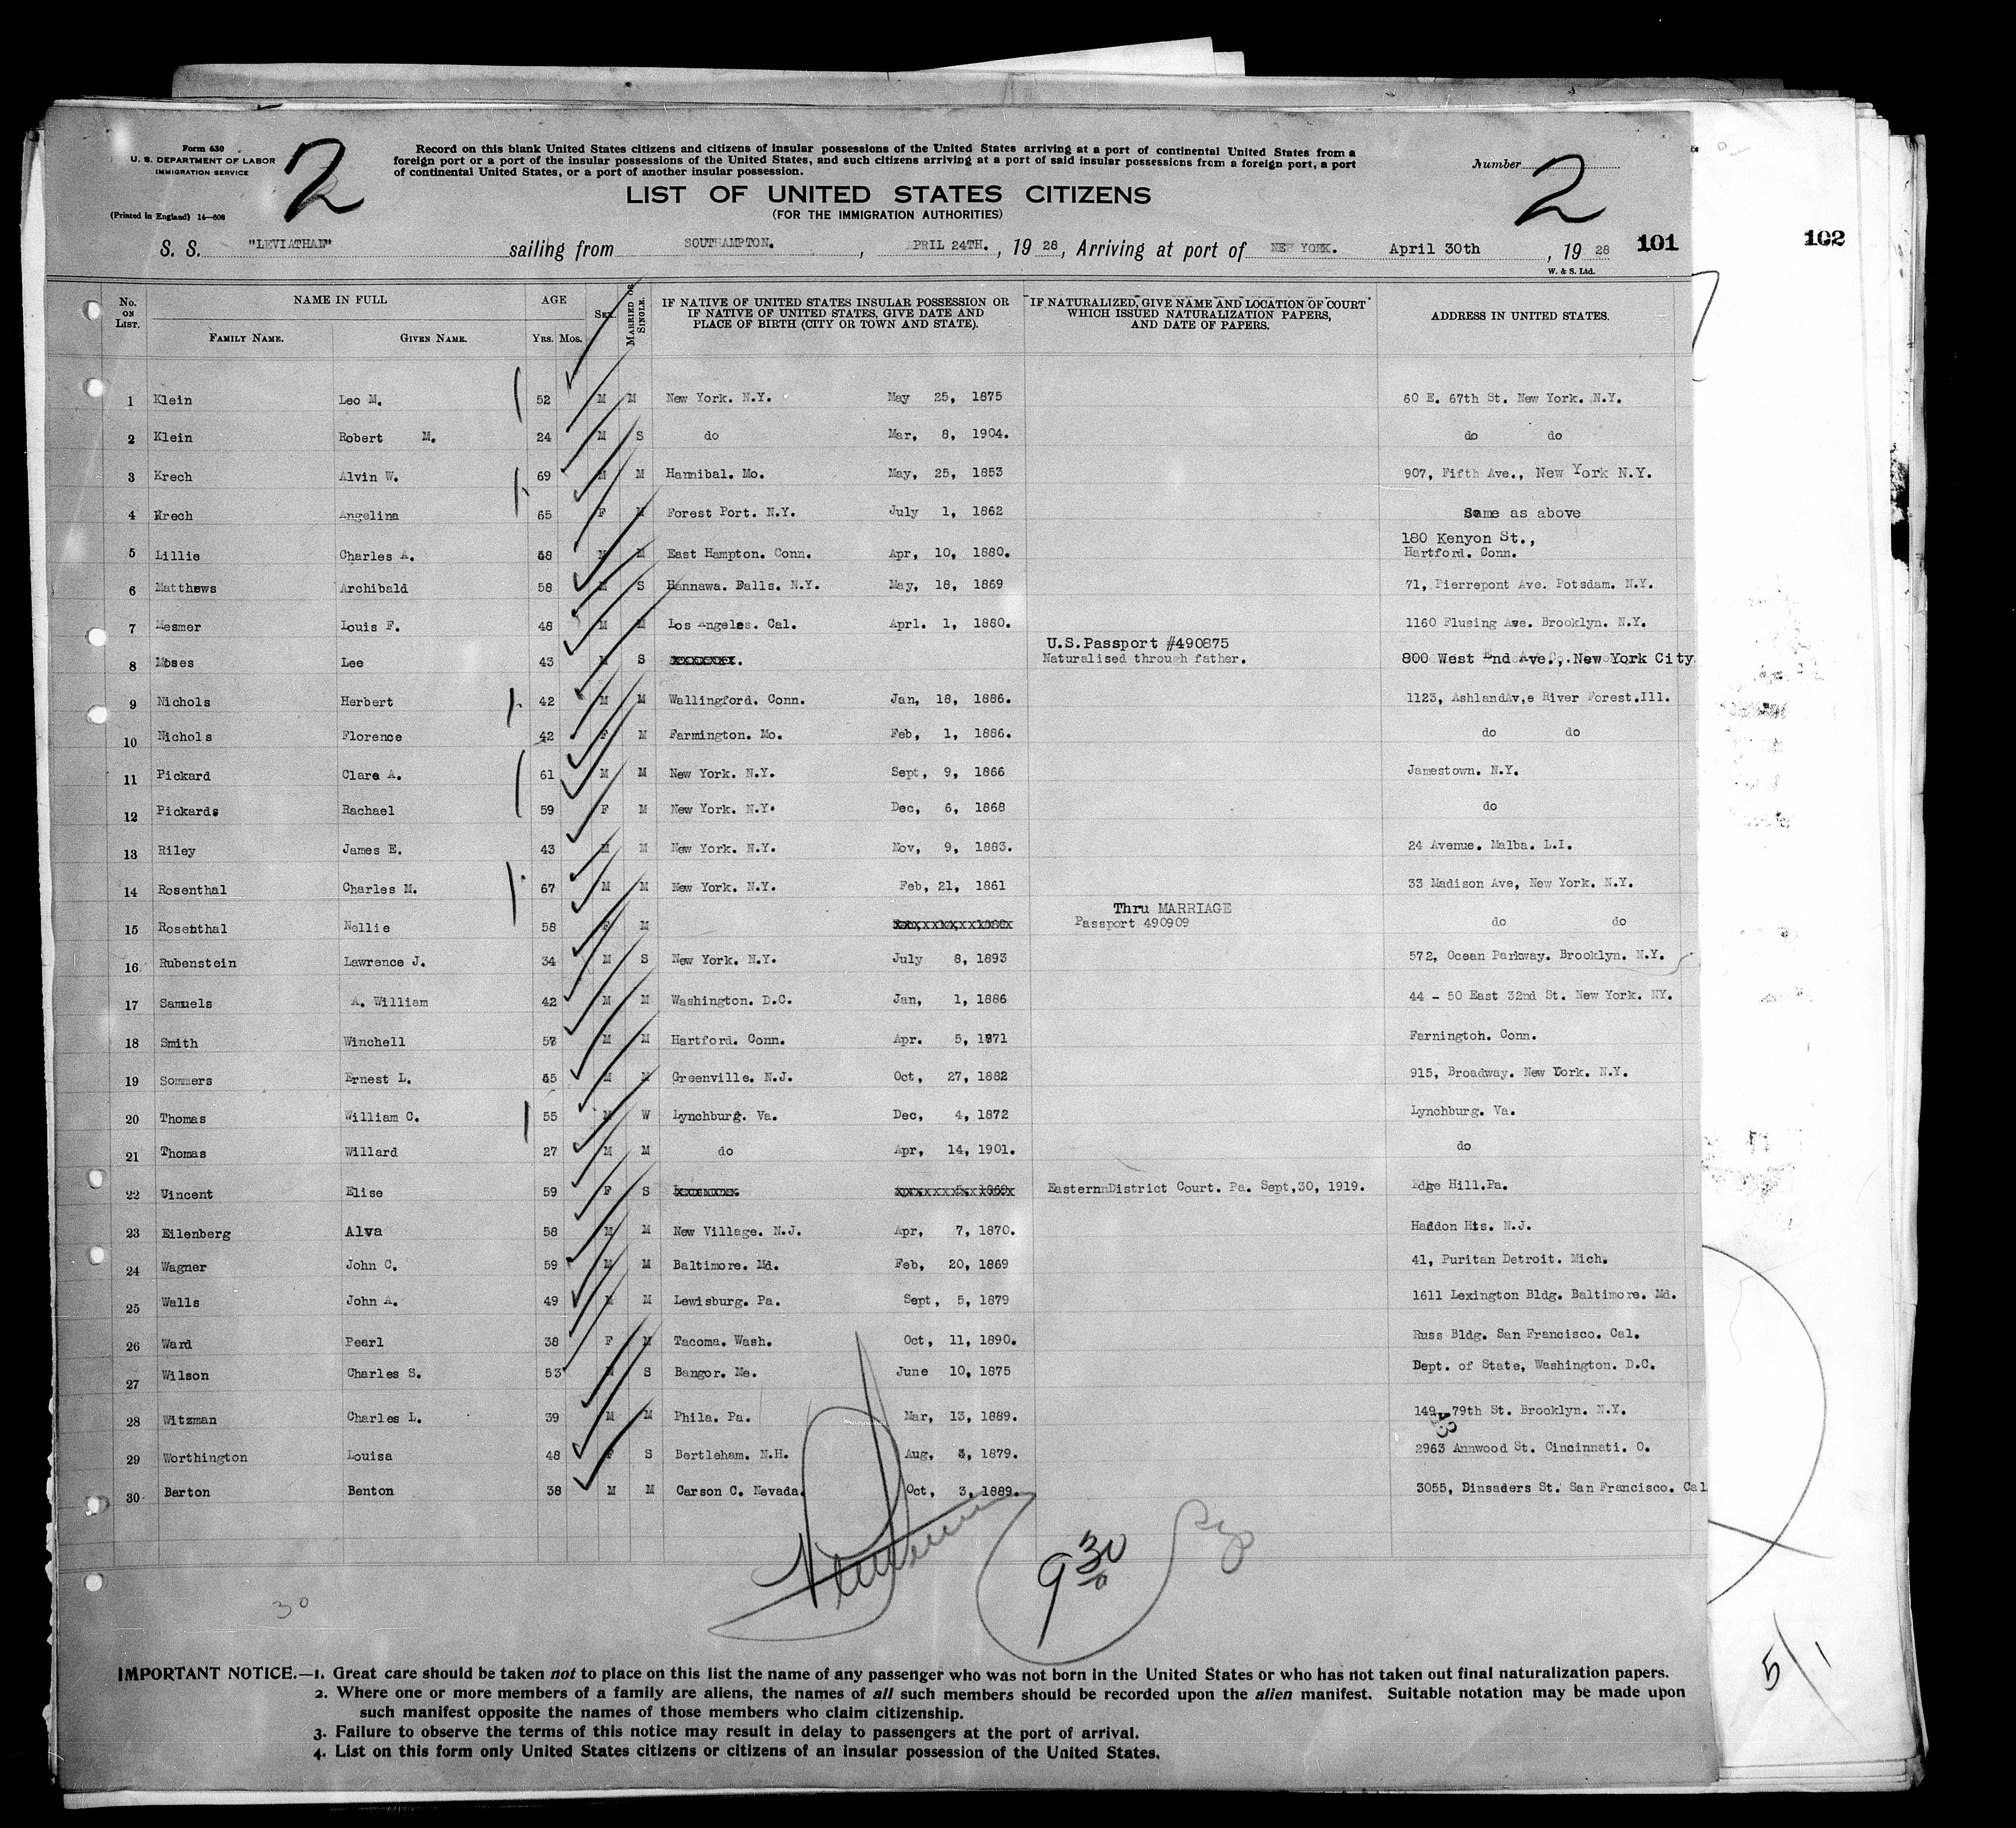 Form 630
U. S. DEPARTMENT OF LABOR
IMMIGRATION SERVICE
(Printed in England) 14—608
2
Record on this blank United States citizens and citizens of insular possessions of the United States arriving at a port of continental United States from a
foreign port or a port of the insular possessions of the United States, and such citizens arriving at a port of said insular possessions from a foreign port, a port
of continental United States, or a port of another insular possession.
Number
2
LIST OF UNITED STATES CITIZENS
(FOR THE IMMIGRATION AUTHORITIES)
S. S. "LEVIATHAN" sailing from SOUTHAMPTON. , APRIL 24TH. , 19 28 , Arriving at port of NEW YORK. April 30th , 19 28 101
102
W. & S. Ltd.
No. ON LIST. NAME IN FULL AGE SEX. MARRIED OR SINGLE. IF NATIVE OF UNITED STATES INSULAR POSSESSION OR IF NATIVE OF UNITED STATES, GIVE DATE AND PLACE OF BIRTH (CITY OR TOWN AND STATE). IF NATURALIZED, GIVE NAME AND LOCATION OF COURT WHICH ISSUED NATURALIZATION PAPERS, AND DATE OF PAPERS. ADDRESS IN UNITED STATES.
FAMILY NAME. GIVEN NAME. YRS. MOS.
1 Klein Leo M. 52 M M New York. N.Y. May 25, 1875 60 E. 67th St. New York. N.Y.
2 Klein Robert M. 24 M S do Mar, 8, 1904. do do
3 Krech Alvin W. 69 M M Hannibal. Mo. May, 25, 1853 907, Fifth Ave., New York N.Y.
4 Krech Angelina 65 F M Forest Port. N.Y. July 1, 1862 Same as above
5 Lillie Charles A. 48 M M East Hampton. Conn. Apr, 10, 1880. 180 Kenyon St.,
Hartford. Conn.
6 Matthews Archibald 58 M S Hannawa. Falls. N.Y. May, 18, 1869 71, Pierrepont Ave. Potsdam. N.Y.
7 Mesmer Louis F. 48 M M Los Angeles. Cal. Aprl. 1, 1880. 1160 Flusing Ave. Brooklyn. N.Y.
8 Moses Lee 43 M S xxxxxxx. U.S.Passport #490875
Naturalised through father. 800 West End Ave., New York City
9 Nichols Herbert 42 M M Wallingford. Conn. Jan, 18, 1886. 1123, AshlandAv,e River Forest.Ill.
10 Nichols Florence 42 F M Farmington. Mo. Feb, 1, 1886. do do
11 Pickard Clare A. 61 M M New York. N.Y. Sept, 9, 1866 Jamestown. N.Y.
12 Pickards Rachael 59 F M New York. N.Y. Dec, 6, 1868 do
13 Riley James E. 43 M M New York. N.Y. Nov, 9, 1883. 24 Avenue. Malba. L.I.
14 Rosenthal Charles M. 67 M M New York. N.Y. Feb, 21, 1861 33 Madison Ave, New York. N.Y.
15 Rosenthal Nellie 58 F M Thru MARRIAGE
Passport 490909 do do
16 Rubenstein Lawrence J. 34 M S New York. N.Y. July 8, 1893 572, Ocean Parkway. Brooklyn. N.Y.
17 Samuels A. William 42 M M Washington. D.C. Jan, 1, 1886 44 - 50 East 32nd St. New York. NY.
18 Smith Winchell 57 M M Hartford. Conn. Apr. 5, 1871 Farnington. Conn.
19 Sommers Ernest L. 45 M M Greenville. N.J. Oct, 27, 1882 915, Broadway. New York. N.Y.
20 Thomas William C. 55 M W Lynchburg. Va. Dec, 4, 1872 Lynchburg. Va.
21 Thomas Willard 27 M M do Apr, 14, 1901. do
22 Vincent Elise 59 F S Eastern District Court. Pa. Sept,30, 1919. Edge Hill.Pa.
23 Eilenberg Alva 58 M M New Village. N.J. Apr, 7, 1870. Haddon Hts. N.J.
24 Wagner John C. 59 M M Baltimore. Md. Feb, 20, 1869 41, Puritan Detroit. Mich.
25 Walls John A. 49 M M Lewisburg. Pa. Sept, 5, 1879 1611 Lexington Bldg. Baltimore. Md.
26 Ward Pearl 38 F M Tacoma. Wash. Oct, 11, 1890. Russ Bldg. San Francisco. Cal.
27 Wilson Charles S. 53 M S Bangor. Me. June 10, 1875 Dept. of State, Washington. D.C.
28 Witzman Charles L. 39 M M Phila. Pa. Mar, 13, 1889. 149 79th St. Brooklyn. N.Y.
29 Worthington Louisa 48 F S Bertleham. N.H. Aug, 1879. 2963 Annwood St. Cincinnati. O.
30 Barton Benton 38 M M Carson C. Nevada. Oct, 3, 1889. 3055, Binsaders St. San Francisco. Cal
9 30
30
5/1
IMPORTANT NOTICE.—1. Great care should be taken not to place on this list the name of any passenger who was not born in the United States or who has not taken out final naturalization papers.
2. Where one or more members of a family are aliens, the names of all such members should be recorded upon the alien manifest. Suitable notation may be made upon
such manifest opposite the names of those members who claim citizenship.
3. Failure to observe the terms of this notice may result in delay to passengers at the port of arrival.
4. List on this form only United States citizens or citizens of an insular possession of the United States.